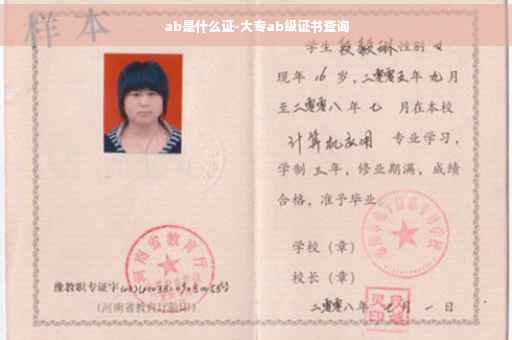 ab是什么证-大专ab级证书查询
样本
学生 段毅琳 性别 女
现年 16 岁，二零零五年 九 月
至二零零八年 七 月在本校
计算机应用 专业学习，
学制 三 年，修业期满，成绩
合格，准予毕业
学校（章）
校长（章）
二零零八年 七 月 一 日
河南省教育厅
豫教职专证字
（河南省教育厅验印）